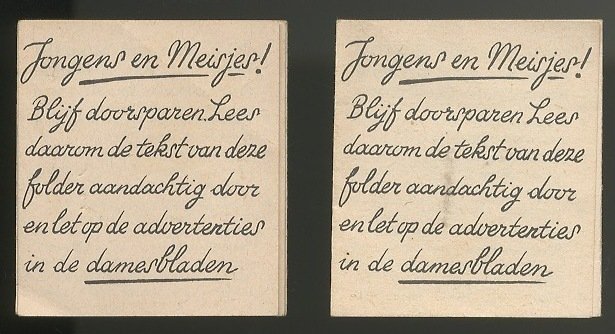 Jongens en Meisjes!
Blijf doorsparen. Lees
daarom de tekst van deze
folder aandachtig door
en let op de advertenties
in de damesbladen
Jongens en Meisjes!
Blijf doorsparen Lees
daarom de tekst van deze
folder aandachtig door
en let op de advertenties
in de damesbladen